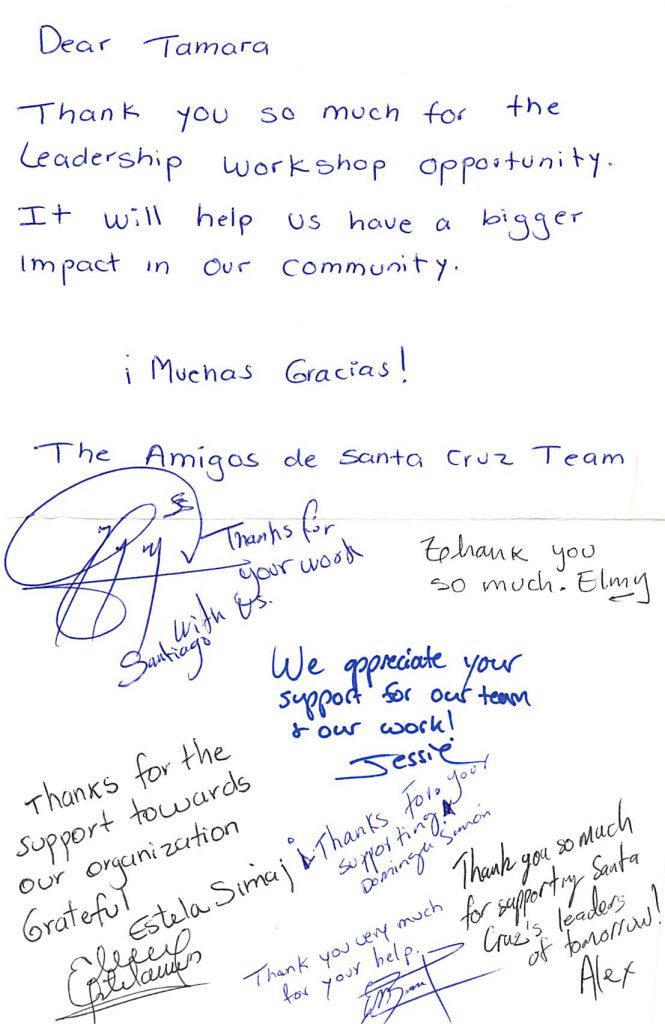 Dear Tamara
Thank you so much for the
Leadership workshop opportunity.
It will help us have a bigger
Impact in our community.
¡Muchas Gracias!
The Amigos de Santa Cruz Team
Thanks for
your work
with us.
Santiago
Thank you
so much. Elmy
We appreciate your
support for our team
& our work!
Jessie
Thanks for the
support towards
our organization
Grateful
Estela Simaj
¡Thanks For your
supporting!
Dominga Simón
Thank you so much
for supporting Santa
Cruz's leaders
of tomorrow!
Alex
Thank you very much
for your help.